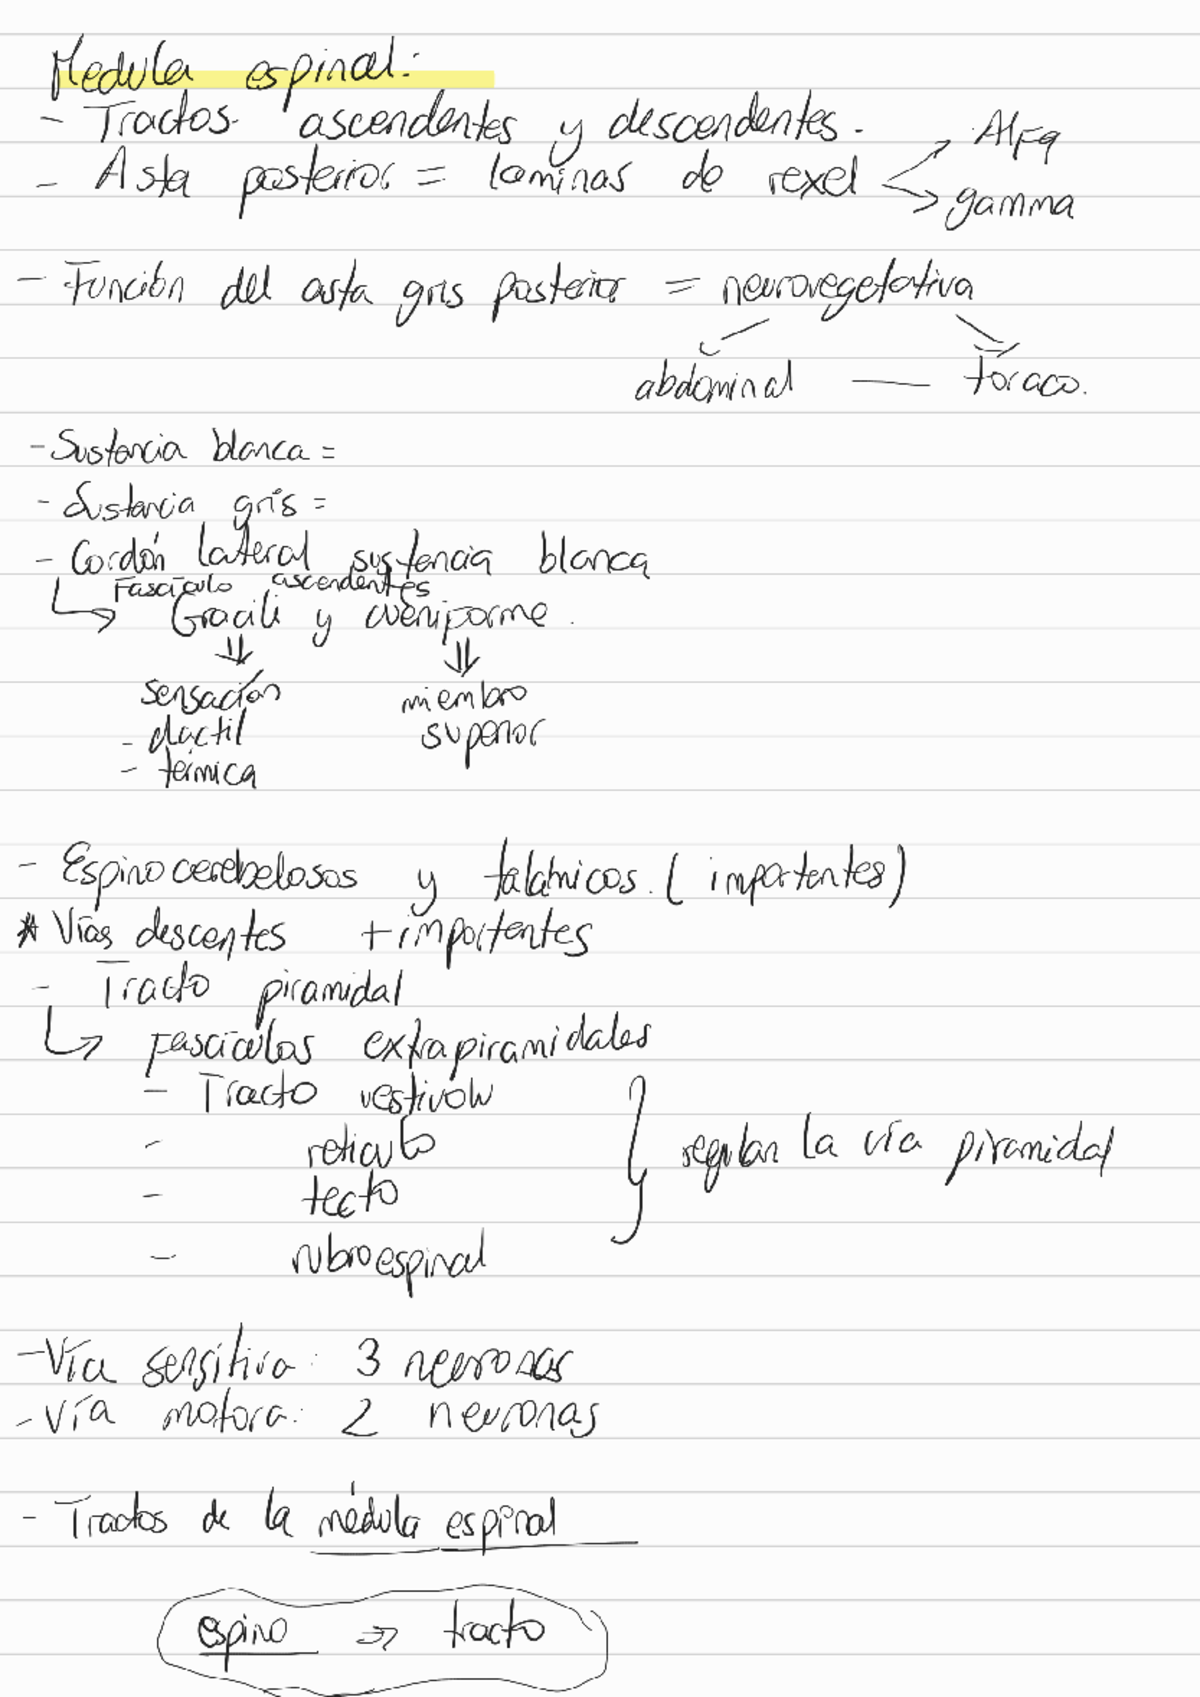 Medula espinal:
- Tractos ascendentes y descendentes.
- Asta posterior = laminas de rexel
Alfa
gamma
- Función del asta gris posterior = neurovegetativa
abdominal — toraco.
- Sustancia blanca =
- Sustancia gris =
- Cordón lateral sustancia blanca
Fascículo ascendentes
Gracili y cueniforme.
sensación
- dactil
- térmica
miembro
superior
- Espinocerebelosos y talámicos. (importantes)
* Vías descentes + importentes
- Tracto piramidal
Fascículos extrapiramidales
- Tracto vestivolu
- reticulo
- tecto
- rubroespinal
regulan la vía piramidal
- Vía sensitiva: 3 neuronas
- Vía motora: 2 neuronas
- Tractos de la médula espinal
espino => tracto